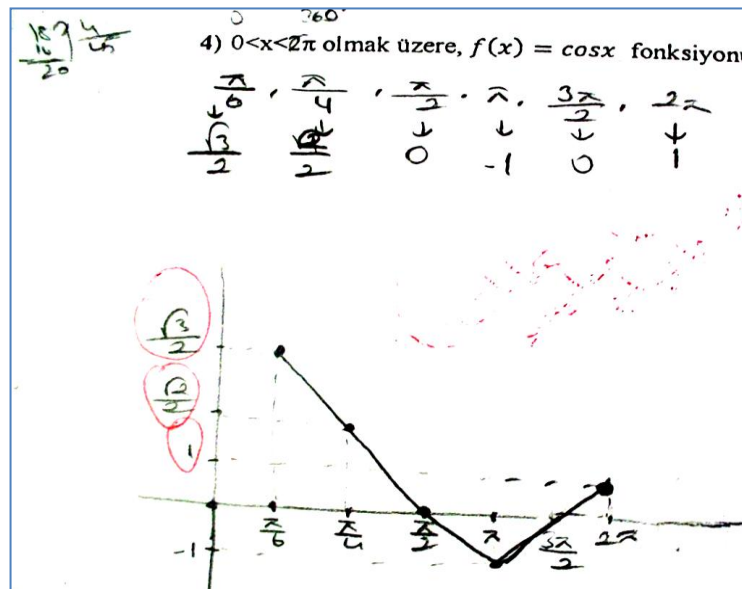 0 360°
180 4
16 45
20
4) 0<x<2π olmak üzere, f(x) = cosx fonksiyonu
π/6 , π/4 , π/2 , π , 3π/2 , 2π
↓ ↓ ↓ ↓ ↓ ↓
√3/2 √2/2 0 -1 0 1
√3/2
√2/2
1
π/6 π/4 π/2 π 3π/2 2π
-1